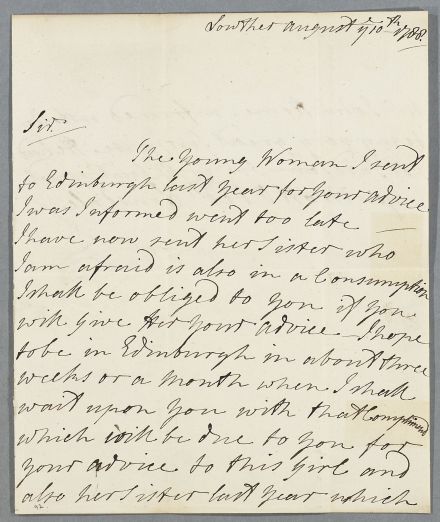 Lowther August ye 10th 1788.
Sir.
The Young Woman I sent
to Edinburgh last Year for Your advice
I was Informed went too late —
I have now sent her Sister who
I am afraid is also in a Consumption
I shall be obliged to you if you
will give Her Your advice — I hope
to be in Edinburgh in about three
weeks or a month when I shall
wait upon You with that Compliment
which will be due to you for
your advice to this girl and
also her Sister last year which